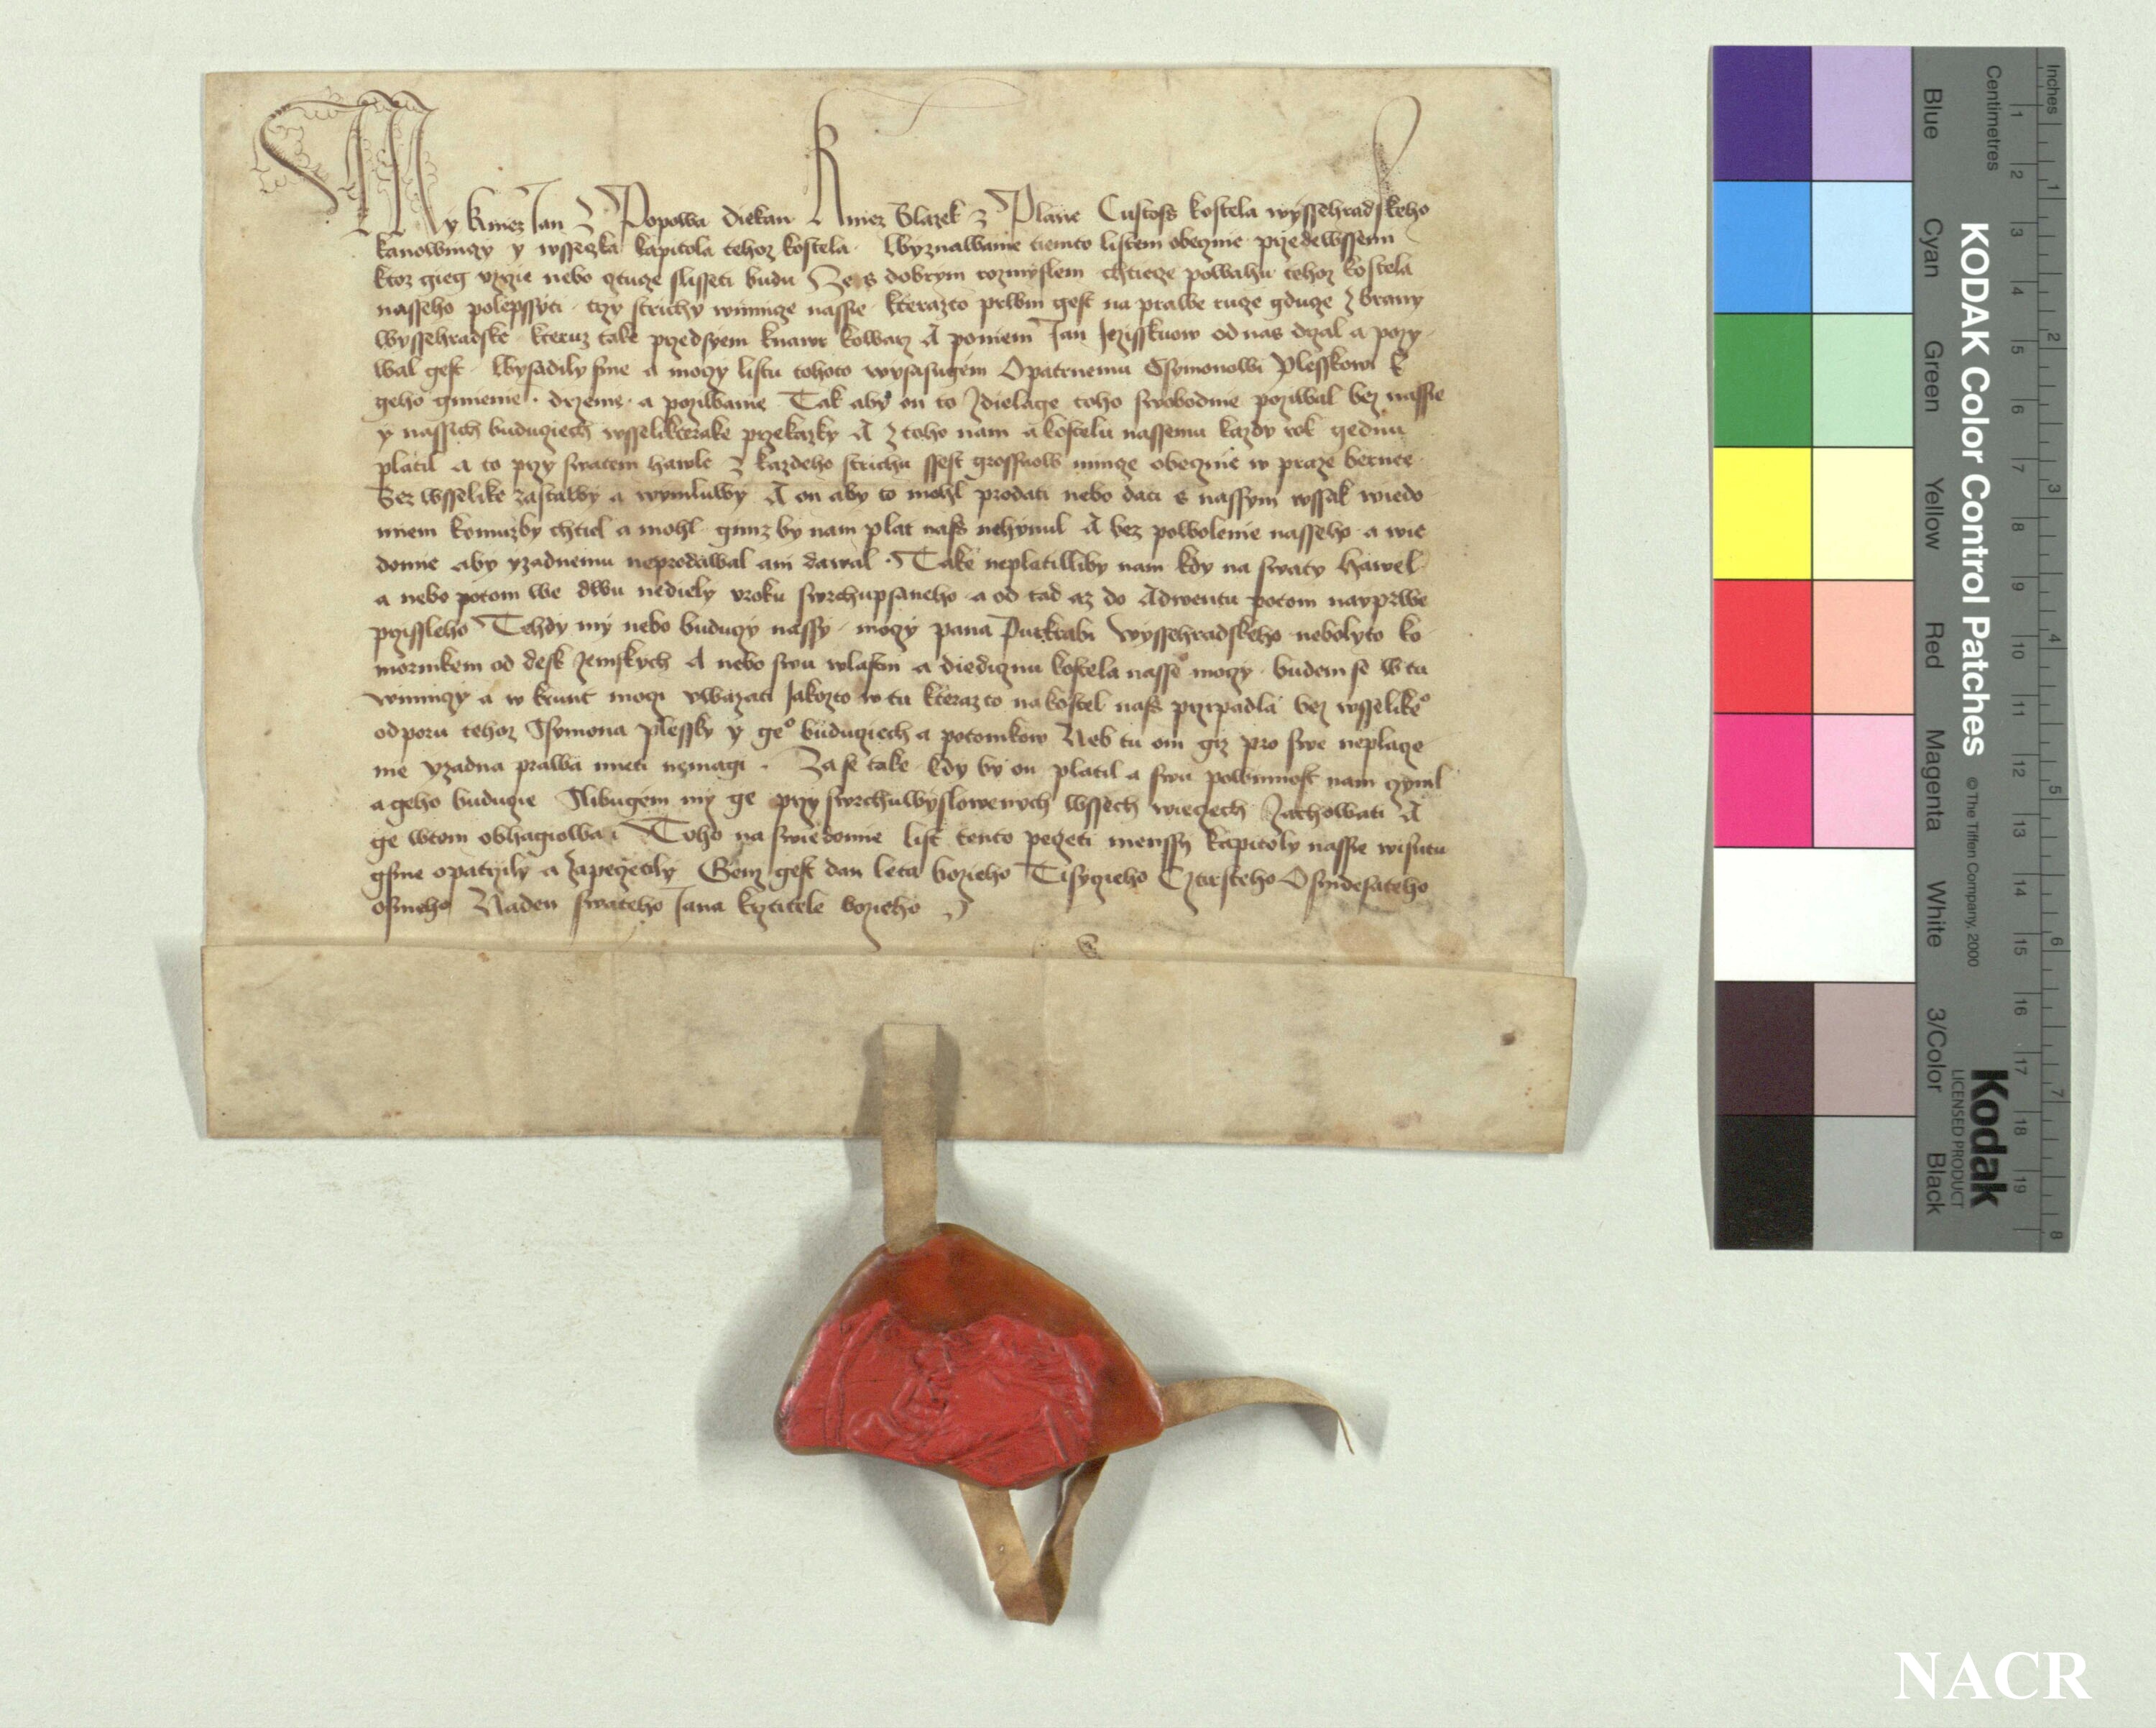 My kniez Jan z Popowa diekan kniez Blazek z Plane Custoss kostela wyssehradskeho
kanowniczy y wsseczka kapitola tehoz kostela Wyznawame tiemto listem obecznie przedewssemi
ktoz gieg vzrzie nebo cztucze slisseti budu Ze s dobrym rozmyslem chticze powahu tehoz kostela
nasseho polepssyti trzy strichy winnicze nassie kterazto prwni gest na prawe rucze gducze z brany
wyssehradske kteruz take przedsyem knawr kowarz A poniem Jan Jezisskuow od nas drzal a pozy
wal gest Wysadily sme a moczy listu tohoto wysazugem Opatrnemu Ssymonowi Plesskowi k
geho gmienie drzenie a poziwanie Tak aby on to zdielage toho swobodnie poziwal bez nassie
y nassich buducziech wsselikterake przekazky A z toho nam a kostelu nassemu kazdy rok gednu
platil a to przy swatem hawle z kazdeho strichu ssest grossuow mincze obecznie w praze berne
bez wsselike zastawy a wymluwy A on aby to mohl prodati nebo dati s nassym wssak wiedo
miem komuzby chtiel a mohl gimz by nam plat nass nehynul A bez powolenie nasseho a wie
domie aby zzadnemu neprodawal ani dawal Take neplatilliby nam kdy na swaty hawel
a nebo potom we dwu nediely vroku swrchupsaneho a od tad az do Adwentu potom nayprwe
przissleho Tehdy my nebo buduczy nassy moczy pana Purkrabi Wyssehradskeho nebolyto ko
mornikem od desk zemskych A nebo swu wlastni a diedicznu kostela nasseo moczy budem se w tu
winniczy a w krunt moczi vwazati Jakozto w tu kterazto na kostel nass przipadla bez wsselikeo
odporu tehoz Ssymona plessky y geo buduczyech a potomkow Neb tu oni giz pro swe neplacze
nie zzadna prawa mieti nemagi Zase take kdy by on platil a swu powinnost nam czynil
a geho buduczie Slibugem my ge przy swrchuwyslowenych wssech wieczech zachowati A
ge wtom obhagiowati Toho na swiedomie list tento peczeti menssy kapitoly nassie wisutu
gsme opatrzily a zapeczetily Genz gest dan leta bozieho Tisyczieho Cztrsteho Osmdesateho
osmeho Naden swateho Jana krztitele bozieho
Inches
Centimetres
1 2 3 4 5 6 7 8
1 2 3 4 5 6 7 8 9 10 11 12 13 14 15 16 17 18 19
KODAK Color Control Patches © The Tiffen Company, 2000
Kodak
LICENSED PRODUCT
Blue Cyan Green Yellow Red Magenta White 3/Color Black
NACR